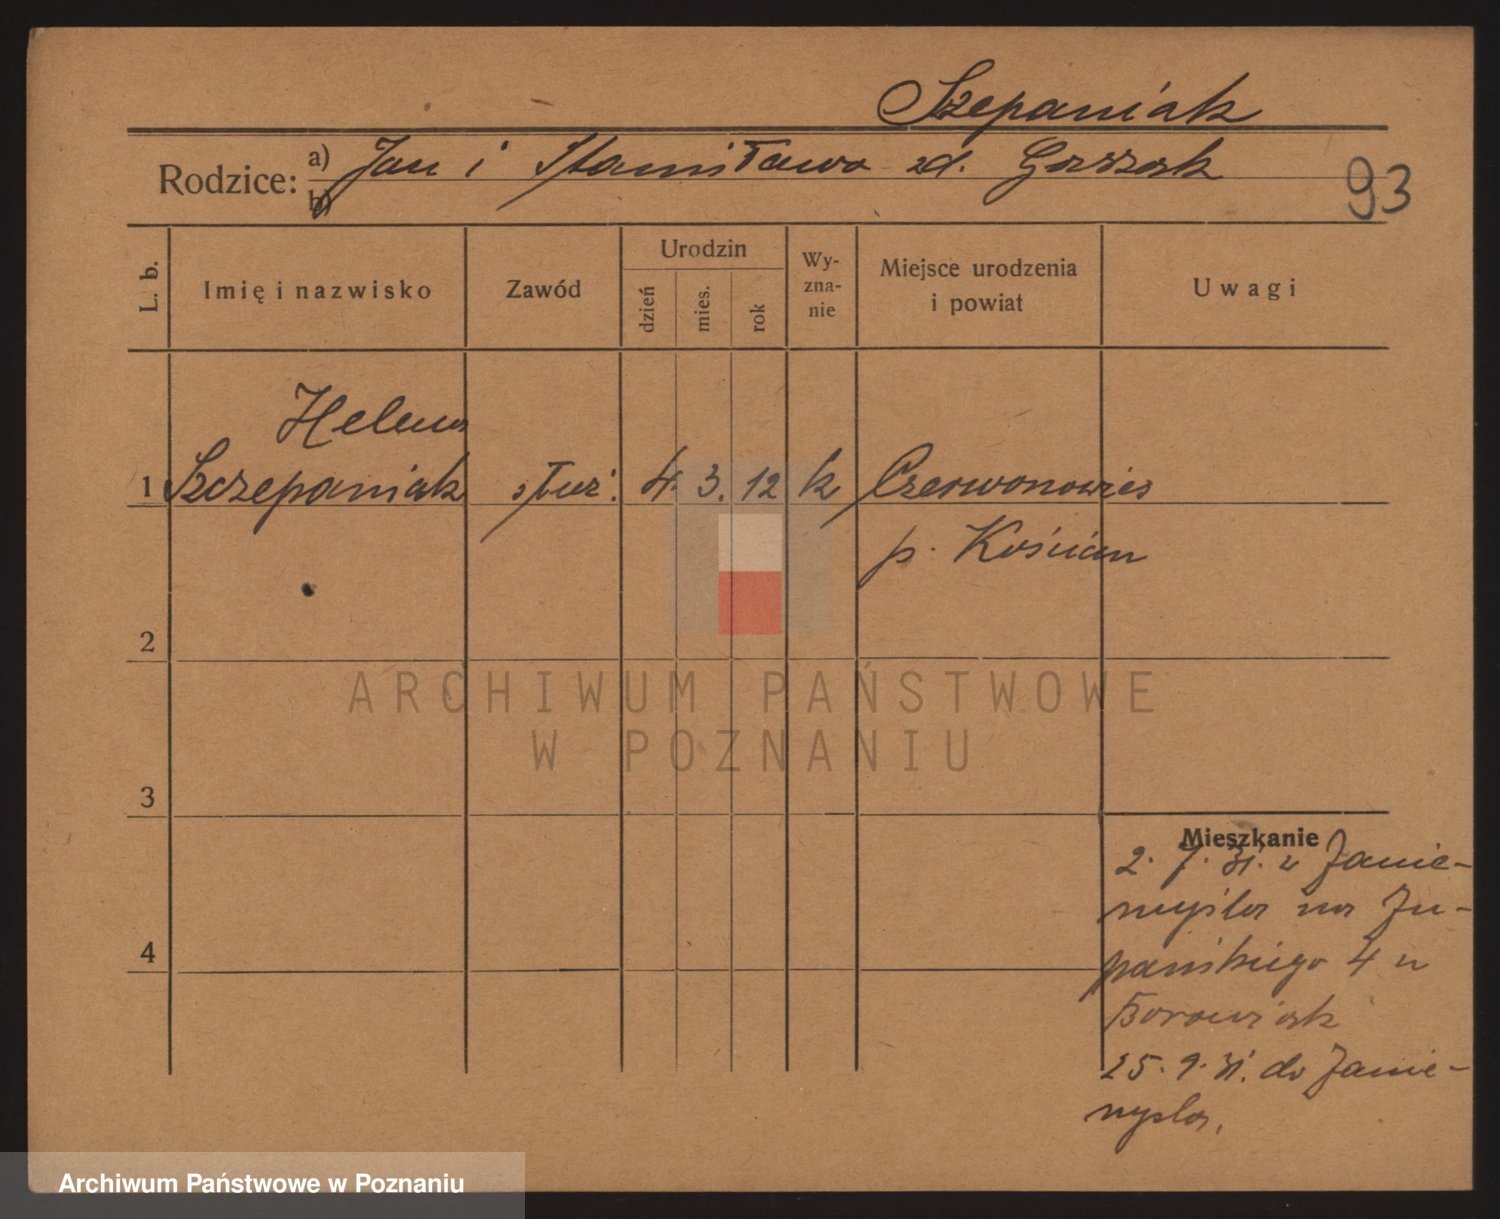 Szczepaniak
Rodzice: a) Jan i Stanisława zd.
b)
93
L. b.
Imię i nazwisko
Zawód
Urodzin
dzień
mies.
rok
Wy-
zna-
nie
Miejsce urodzenia
i powiat
Uwagi
Helena
1 Szczepaniak służ. 4. 3. 12 k Czerwonawieś
p. Kościan
2
ARCHIWUM PAŃSTWOWE
W POZNANIU
3
Mieszkanie
2. 7. 31. z Janie-
myśla na Żu-
pańskiego 4 u
Borowiak
25. 9. 31. do Janie-
myśla.
4
Archiwum Państwowe w Poznaniu